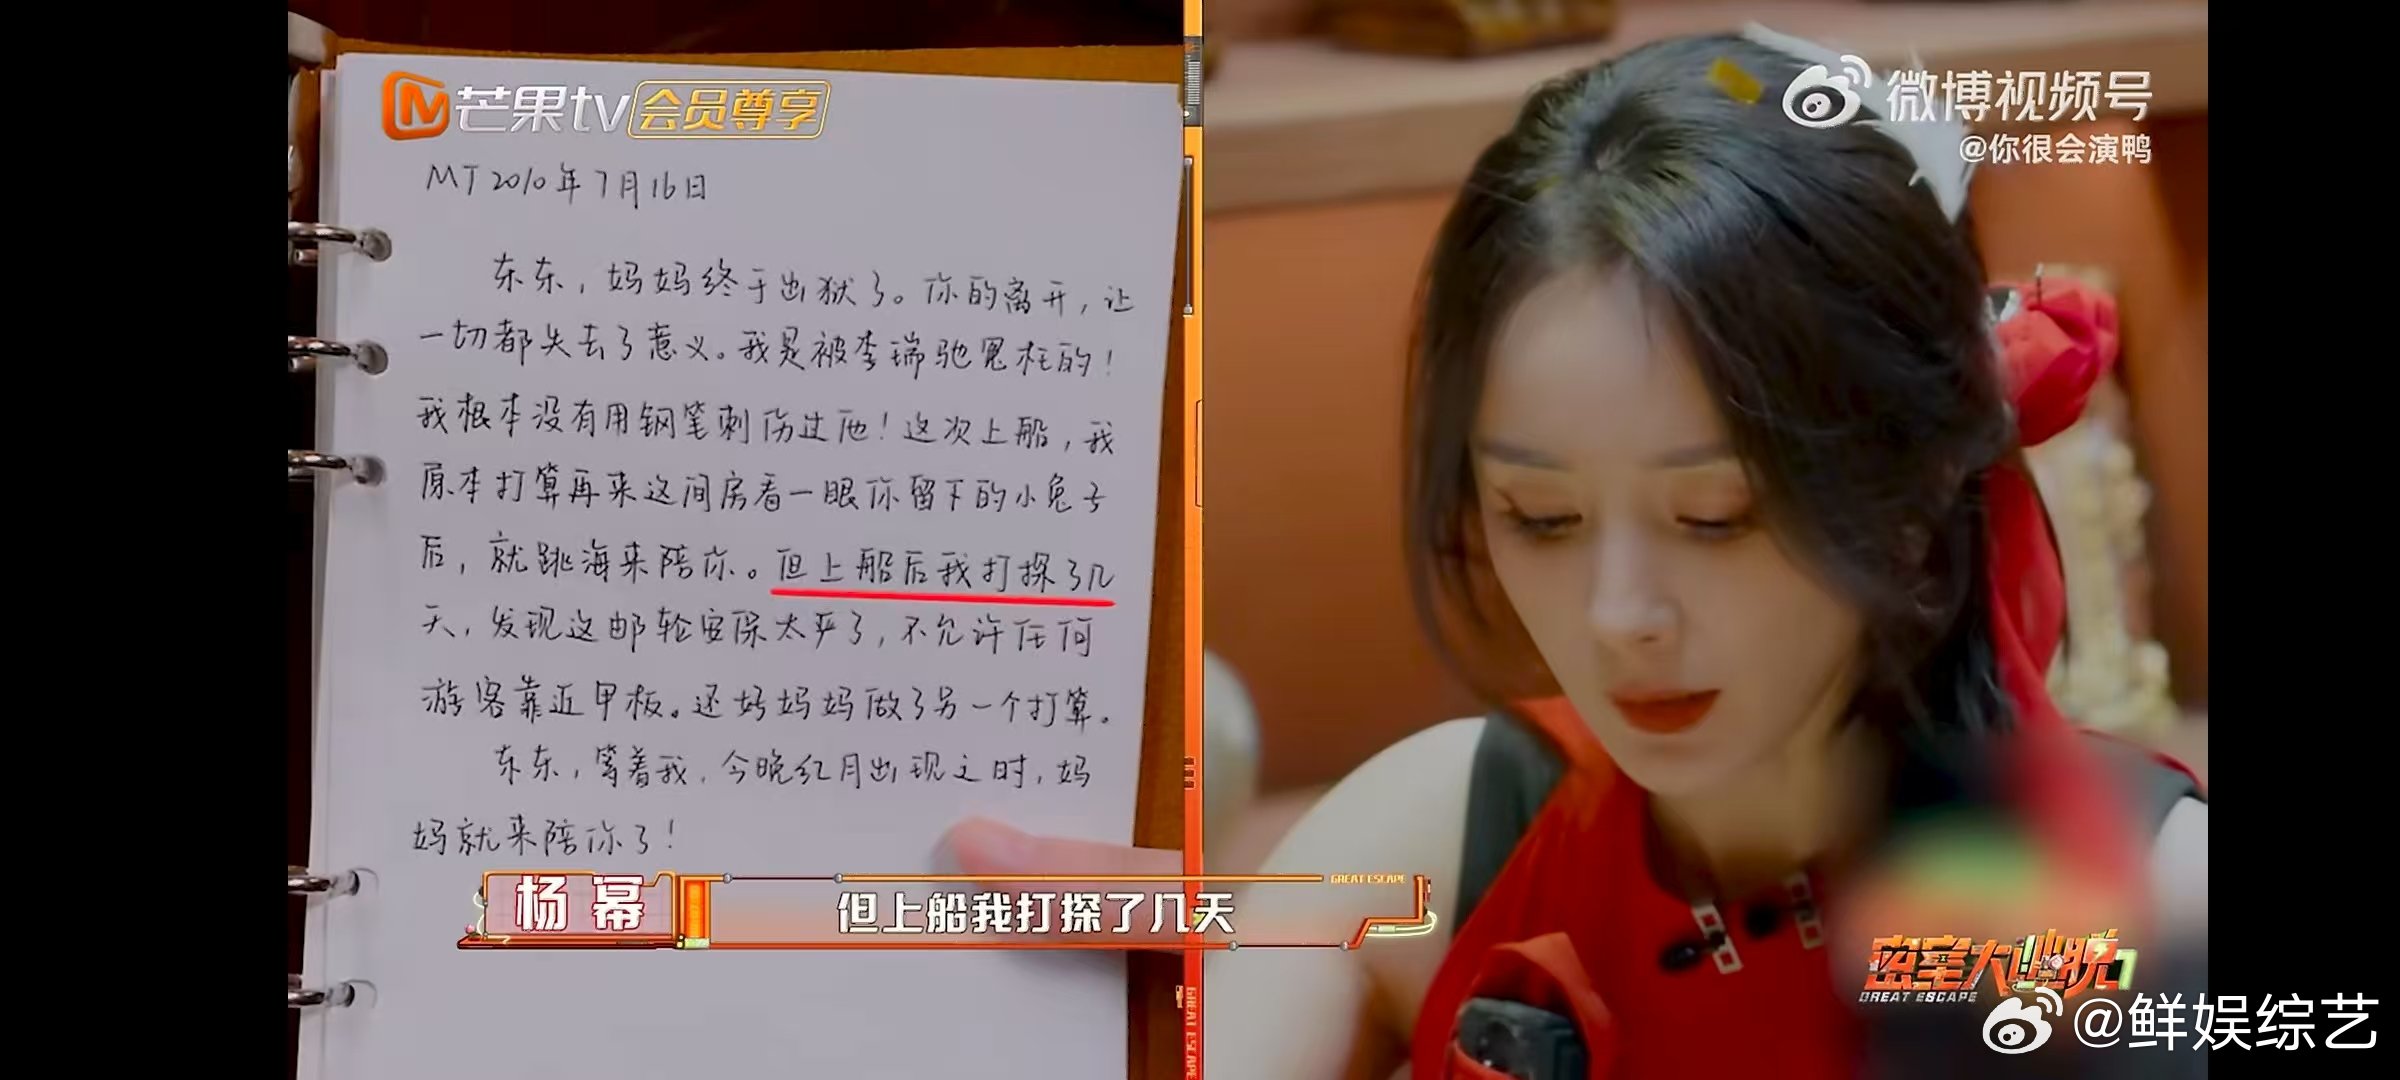 芒果tv会员尊享
MT 2010年7月16日
东东，妈妈终于出狱了。你的离开，让
一切都失去了意义。我是被李瑞驰冤枉的！
我根本没有用钢笔刺伤过他！这次上船，我
原本打算再来这间房看一眼你留下的小兔子
后，就跳海来陪你。但上船后我打探了几
天，发现这邮轮安保太严了，不允许任何
游客靠近甲板。还好妈妈做了另一个打算。
东东，等着我，今晚红月出现之时，妈
妈就来陪你了！
杨幂
但上船我打探了几天
GREAT ESCAPE
GREAT ESCAPE
微博视频号
@你很会演鸭
密室大逃脱7
GREAT ESCAPE
@鲜娱综艺